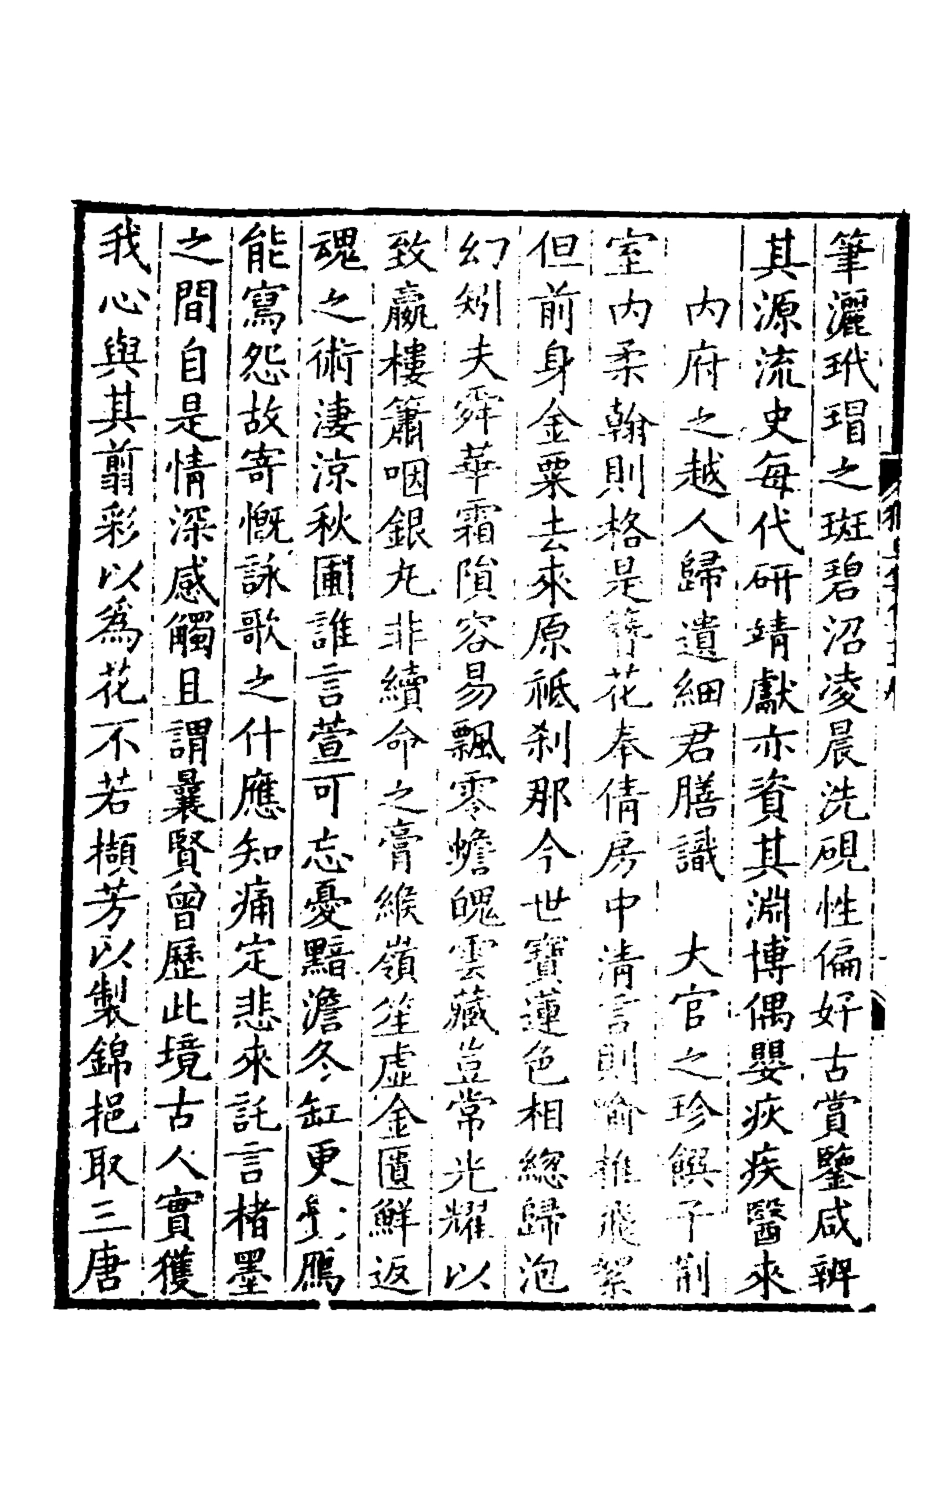 筆灑玳瑁之斑碧沼凌晨洗硯性偏好古賞鑒咸辨
其源流史每代研靖獻亦資其淵博偶嬰疢疾醫來
內府之越人歸遺細君膳識　大官之珍饌子荊
室內柔翰則格是簪花奉倩房中清言則喻推飛絮
但前身金粟去來原祗剎那今世寶蓮色相總歸泡
幻矧夫舜華霜隕容易飄零蟾魄雲藏豈常光耀以
致嬴樓簫咽銀丸非續命之膏緱嶺笙虛金匱鮮返
魂之術淒涼秋圃誰言萱可忘憂黯澹冬缸更覺鴈
能寫怨故寄慨詠歌之什應知痛定悲來託言楮墨
之間自是情深感觸且謂曩賢曾歷此境古人實獲
我心與其翦彩以爲花不若擷芳以製錦挹取三唐